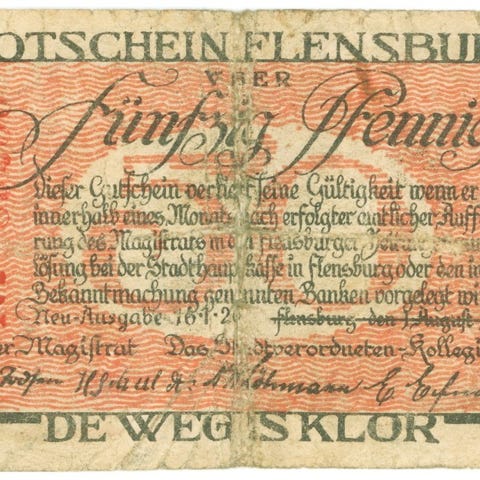 OTSCHEIN FLENSBUR
VBER
Fünfzig Pfennig
Dieser Gutschein verliert seine Gültigkeit wenn er
innerhalb eines Monats nach erfolgter amtlicher Auff
rung des Magistrats in den Flensburger
lösung bei der Stadthauptkasse in Flensburg oder den in
Bekanntmachung genannten Banken vorgelegt wi
Neu-Ausgabe 16·1·20 Flensburg den 1. August
er Magistrat Das Stadtverordneten-Kollegi
DE WEG IS KLOR